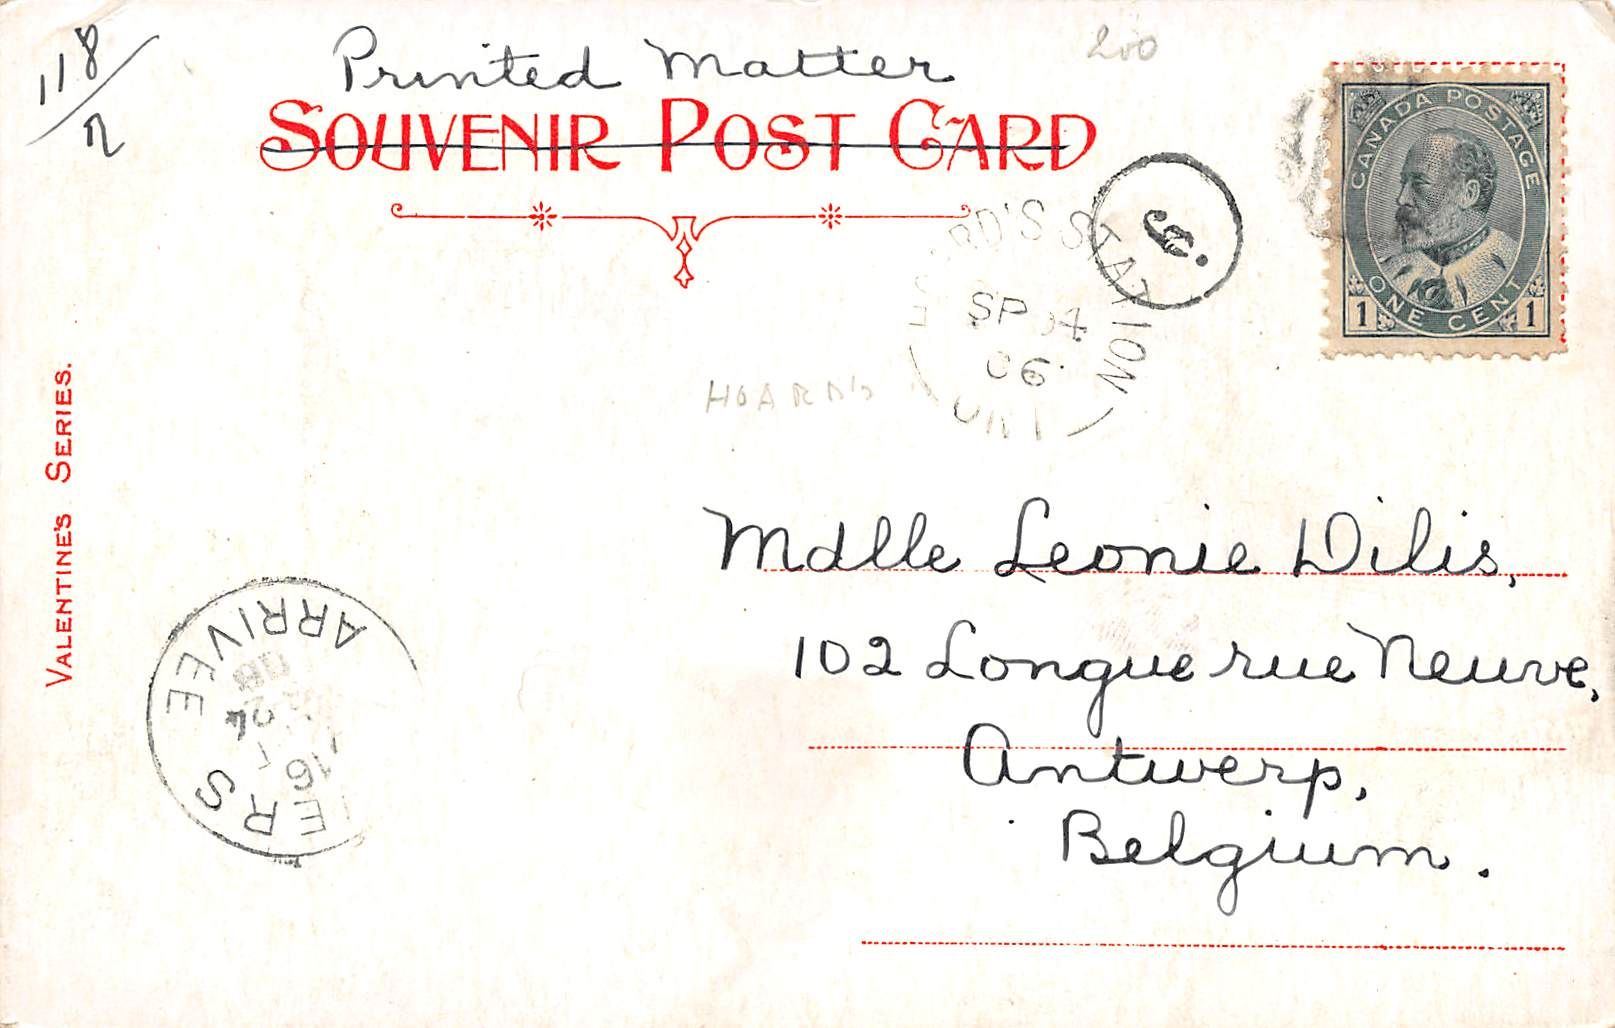 118/2
Printed Matter
200
SOUVENIR POST CARD
CANADA POSTAGE
ONE CENT
1 1
9.
RD'S STATION
SP 04
06
HOARD'S
VALENTINE'S SERIES.
Mdlle Leonie Dilis,
102 Longue rue Neuve,
Antwerp,
Belgium.
ARRIVEE
24
16
IERS